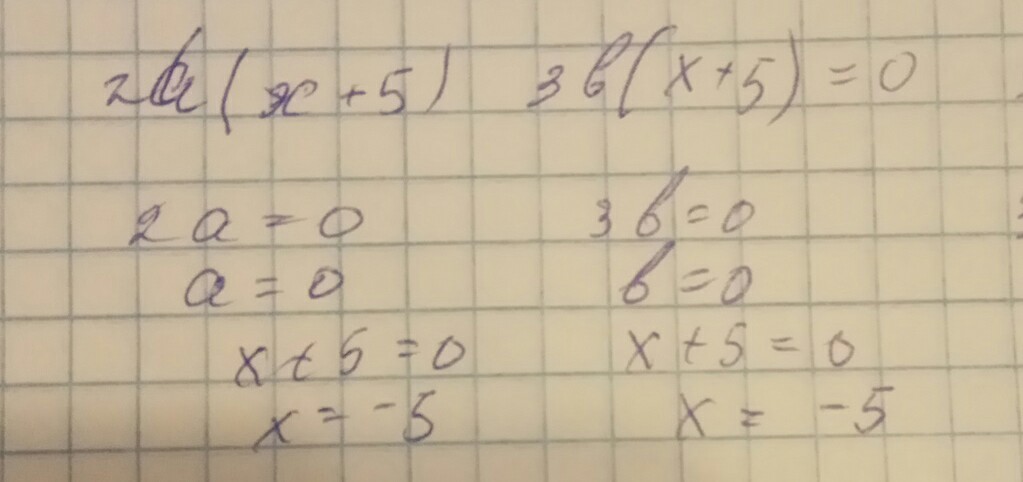 2a(x+5) 3b(x+5)=0
2a=0 3b=0
a=0 b=0
x+5=0 x+5=0
x=-5 x=-5